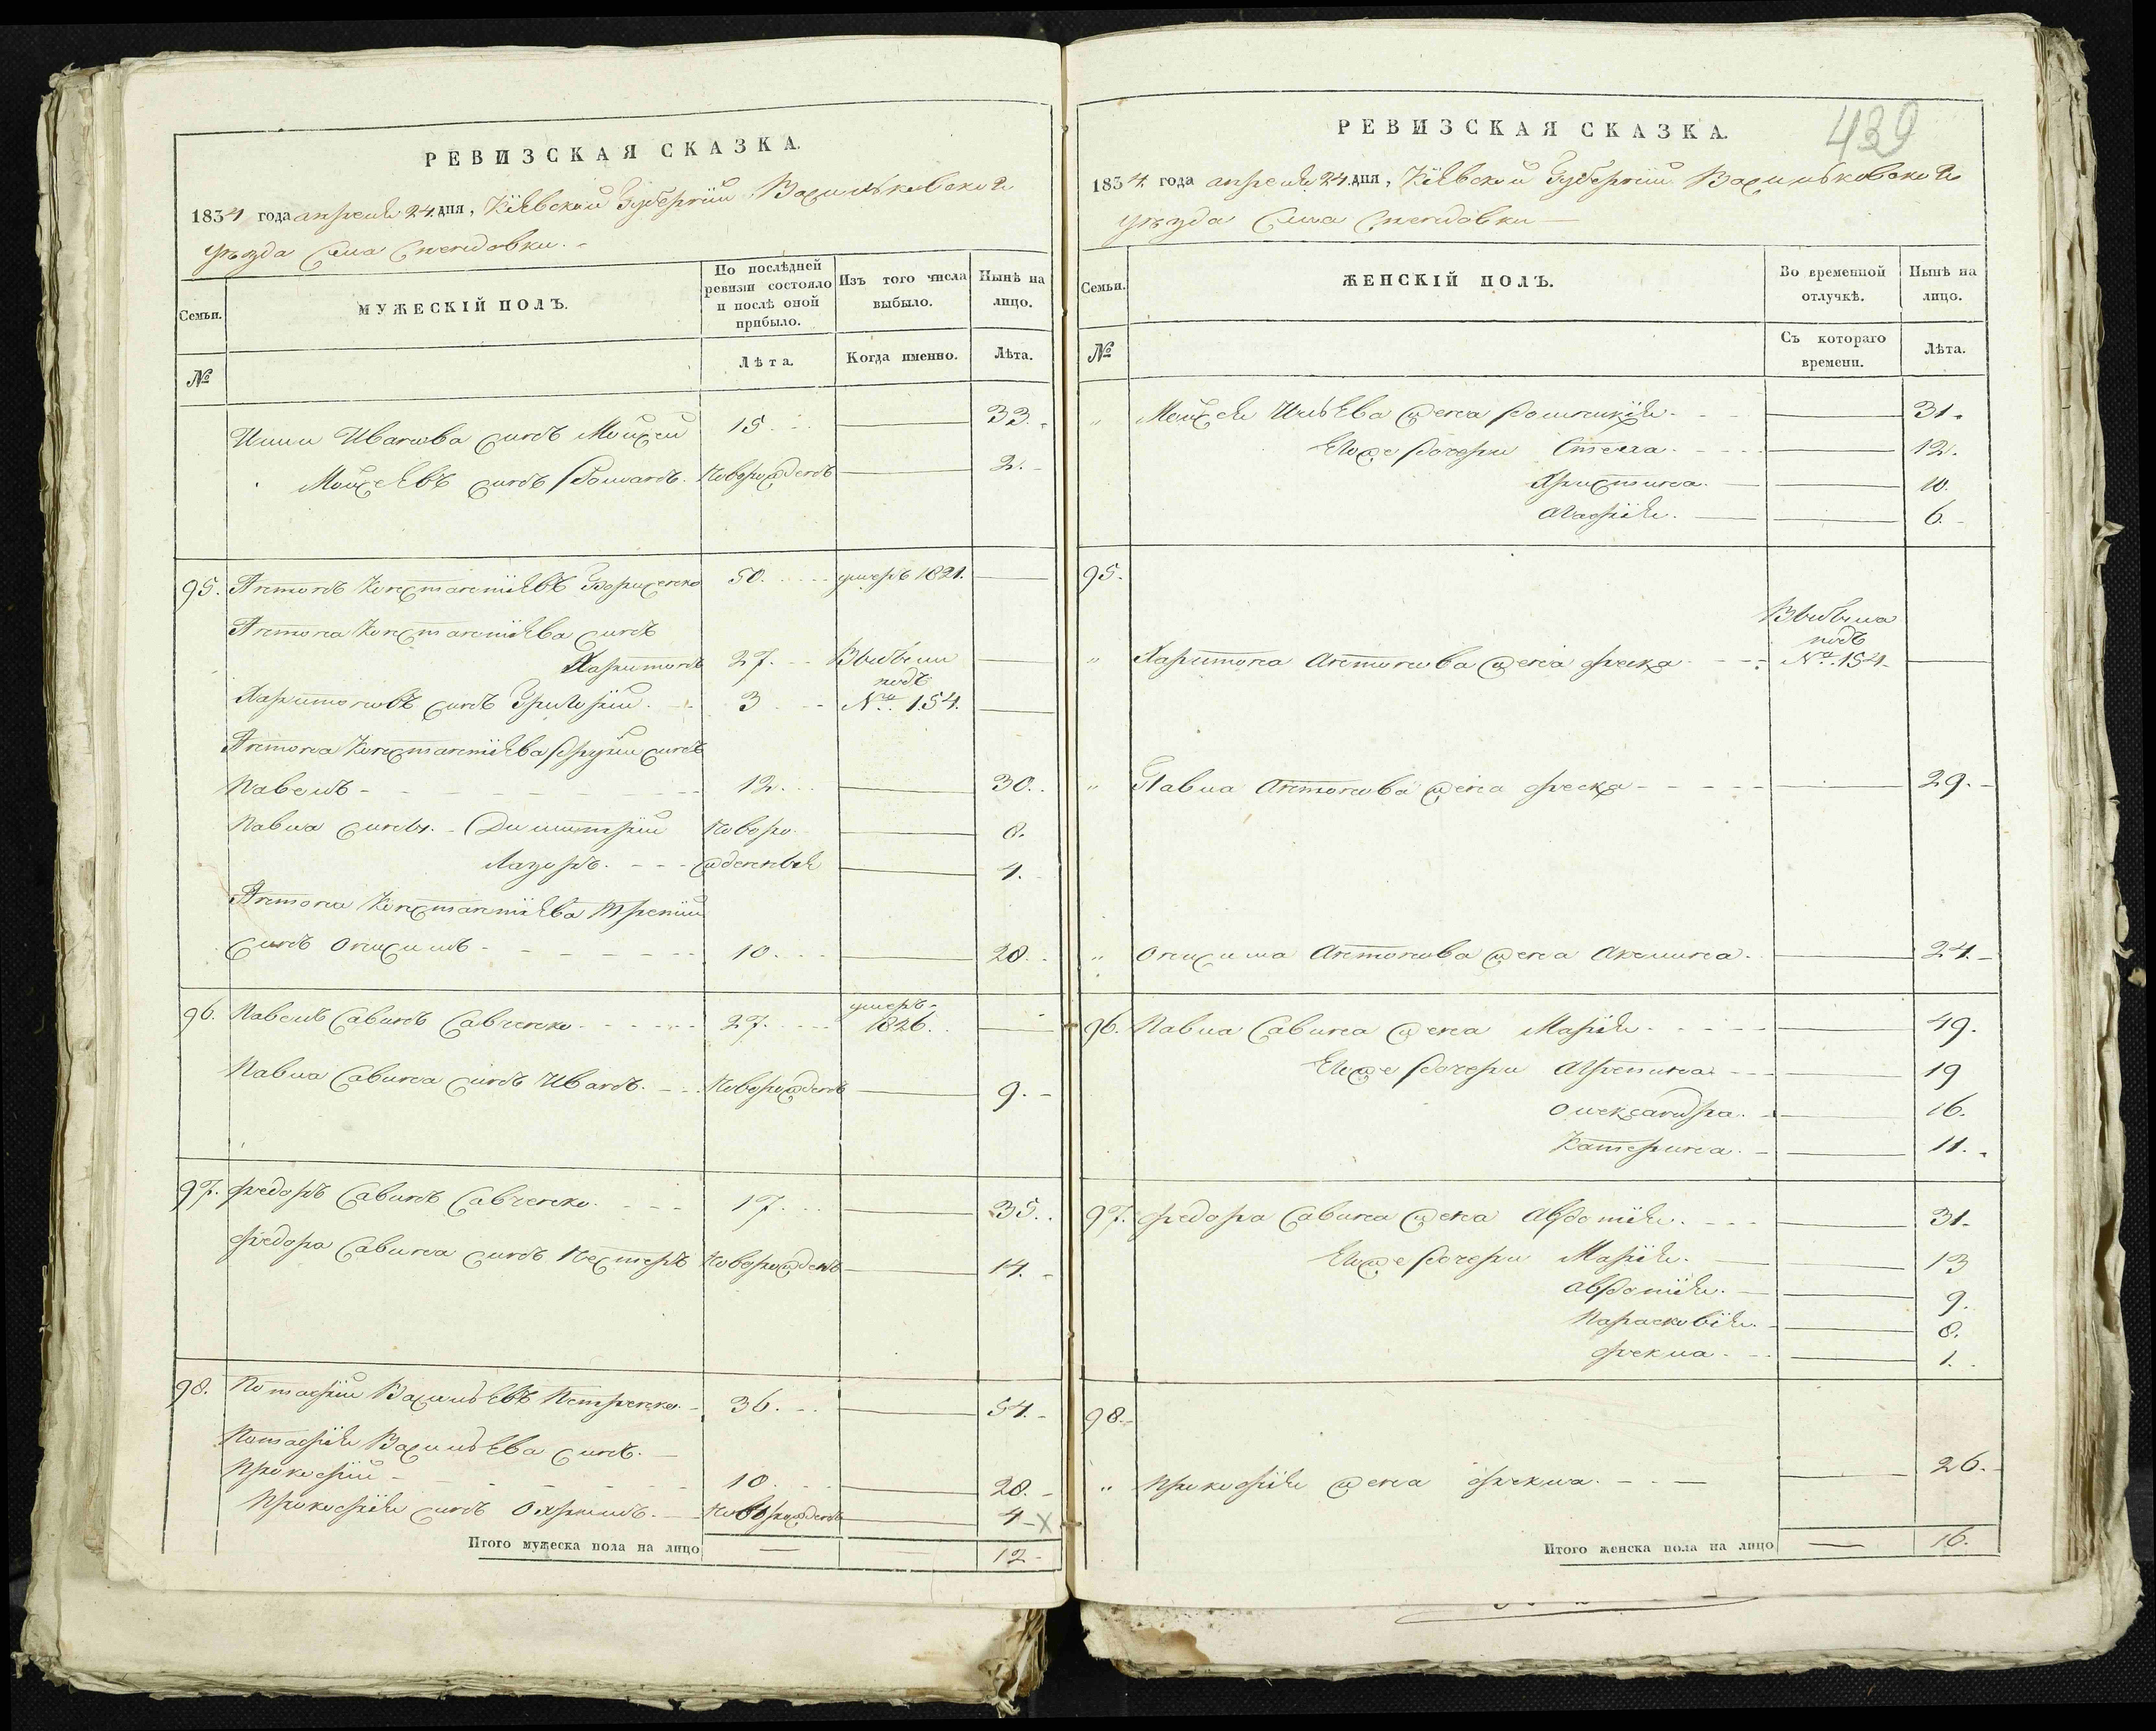 РЕВИЗСКАЯ СКАЗКА.
1834 года апреля 24 дня, Кіевской Губерніи Васильковскаго
уѣзда Села
Семьи.
МУЖЕСКІЙ ПОЛЪ.
По послѣдней ревизіи состояло и послѣ оной прибыло.
Изъ того числа выбыло.
Нынѣ на лицо.
№
Лѣта.
Когда именно.
Лѣта.
Ильи Иванова сынъ Мойсей 15. 33.
Мойсеевъ сынъ Романъ. Новорожденъ 2.
95. Антонъ Константіевъ Борисенко 50. умеръ 1821.
Антона Константіева сынъ
Харитонъ 27. Выбыли
подъ
Харитоновъ сынъ Григорій. 3 №. 154.
Антона Константіева другий сынъ
Павелъ 12. 30.
Павла сыны. Димитрій Новоро- 8.
Лазоръ. жденныя 4.
Антона Константіева третій
сынъ Онисимъ 10. 28.
96. Павелъ Савинъ Савченко 27. умеръ 1826.
Павла Савина сынъ Иванъ. Новорожденъ 9.
97. Федоръ Савинъ Савченко. 17. 35.
Федора Савина сынъ Нестеръ Новорожденъ 14.
98. Потафій Васильевъ Петренко. 36. 54.
Потафія Васильева сынъ.
Прокофій 10. 28.
Прокофія сынъ Охримъ. Новорожденъ 4 X
Итого мужеска пола на лицо 12
439
РЕВИЗСКАЯ СКАЗКА.
1834 года апреля 24 дня, Кіевской Губерніи Васильковскаго
уѣзда Села
Семьи.
ЖЕНСКІЙ ПОЛЪ.
Во временной отлучкѣ.
Нынѣ на лицо.
№
Съ котораго времени.
Лѣта.
" Мойсея Ильева жена 31.
Егоже дочери 12.
Христина. 10.
Агафія. 6.
95.
Выбыла
подъ
" Харитона Антонова жена Феска №. 154
" Павла Антонова жена Феска 29.
" Онисима Антонова жена Акелина. 24.
96. Павла Савина жена Марія 49.
Егоже дочери Агрепина 19
Олександра. 16.
Катерина. 11.
97. Федора Савина жена Авдотія. 31.
Егоже дочери Марія. 13
Авдотія. 9.
Парасковія. 8.
Фекла. 1.
98.
" Прокофія жена Фекла. 26.
Итого женска пола на лицо 16.